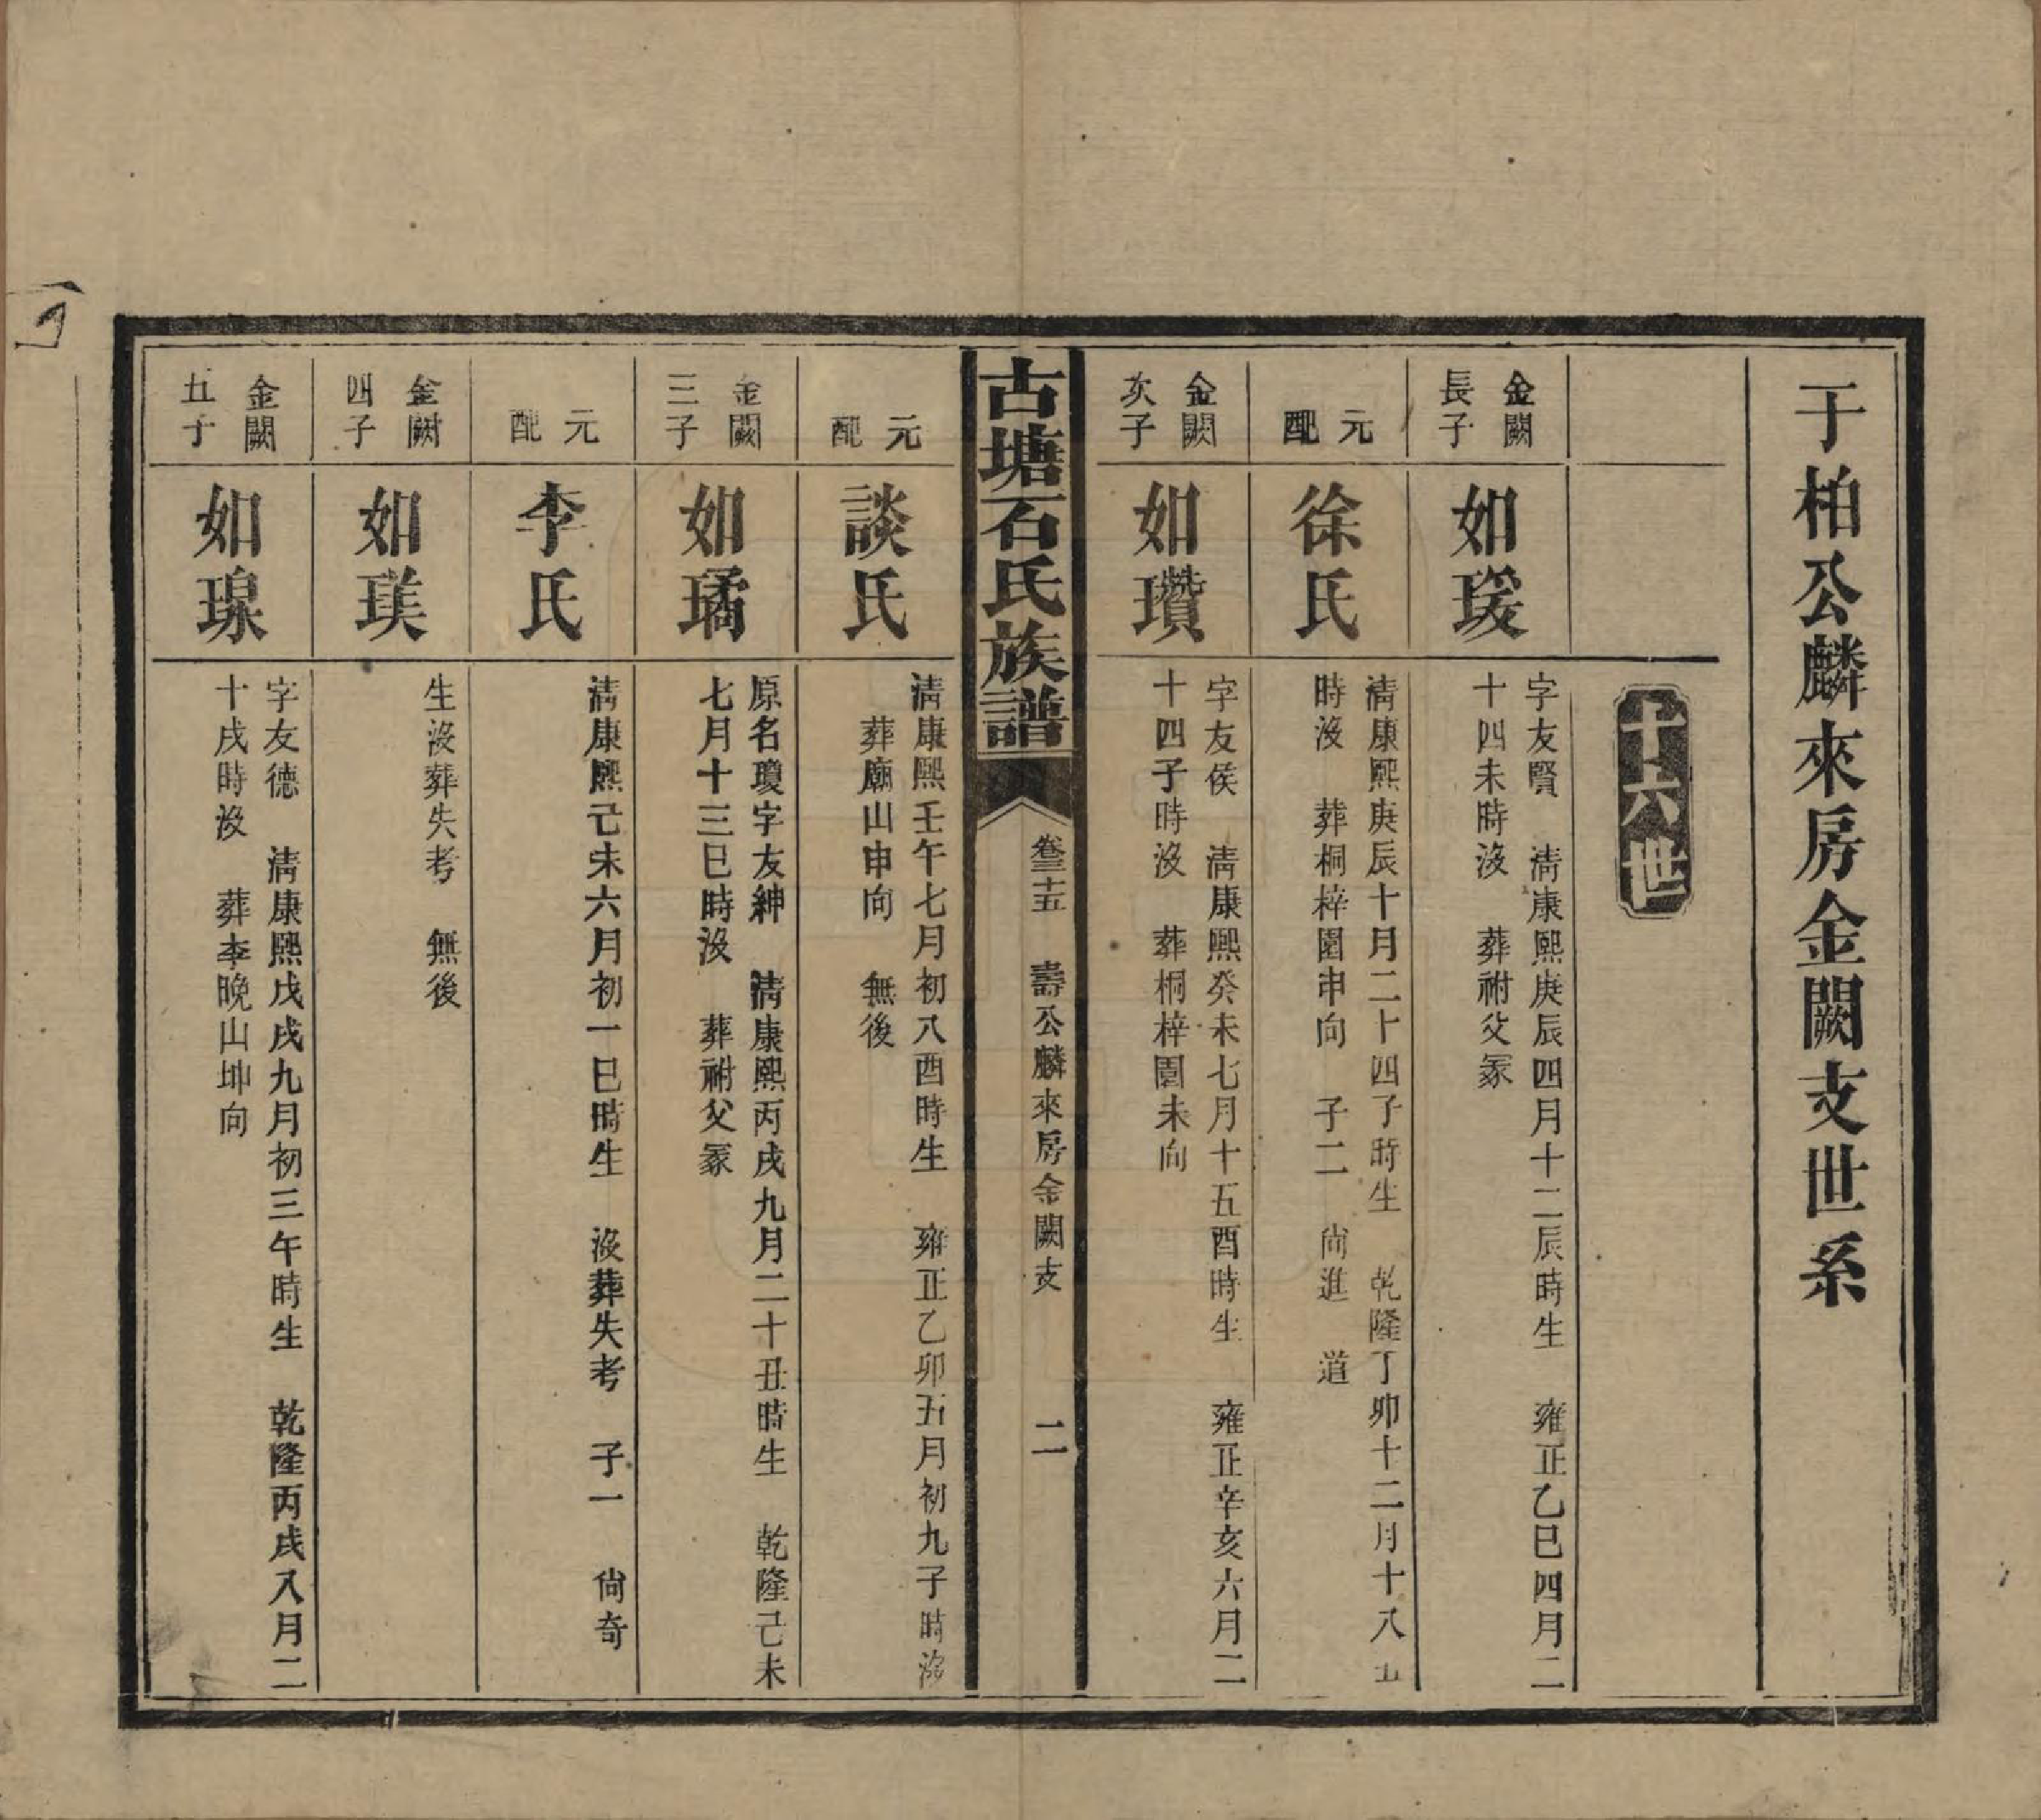 于柏公麟來房金闕支世系
十六世
金闕
長子
如瑗
字友賢　清康熙庚辰四月十二辰時生　雍正乙巳四月二
十四未時沒　葬祔父冢
元
配
徐氏
清康熙庚辰十月二十四子時生　乾隆丁卯十二月十八丑
時沒　葬桐梓園申向　子二　尙進　道
金闕
次子
如瓚
字友侯　清康熙癸未七月十五酉時生　雍正辛亥六月二
十四子時沒　葬桐梓園未向
古塘石氏族譜
卷三十五　壽公麟來房金闕支　二
元
配
談氏
清康熙壬午七月初八酉時生　雍正乙卯五月初九子時沒
葬廟山申向　無後
金闕
三子
如璚
原名瓊字友紳　清康熙丙戌九月二十丑時生　乾隆己未
七月十三巳時沒　葬祔父冢
元
配
李氏
清康熙己未六月初一巳時生　沒葬失考　子一　尙奇
金闕
四子
如瑛
生沒葬失考　無後
金闕
五子
如璟
字友德　清康熙戊戌九月初三午時生　乾隆丙戌八月二
十戌時沒　葬李晚山坤向